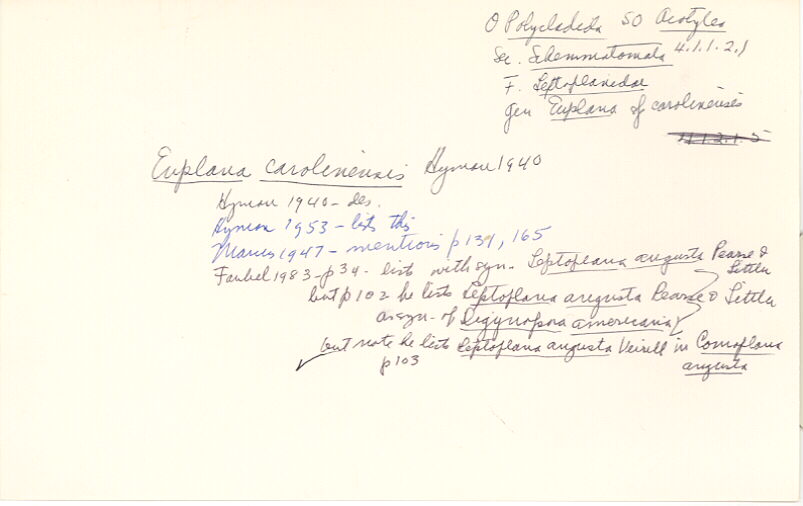 O Polycladida SO Acotylea
Sec. Schemmatomata 4.1.1.2.1
F. Leptoplanidae
gen Euplana of carolinensis
4.1.2.1.5
Euplana carolinensis Hyman 1940
Hyman 1940 - des.
Hyman 1953 - lists this
Marcus 1947 - mentions p 134, 165
Faubel 1983 - p 34 - lists with syn. Leptoplana angusta Pearse & Littler
but p 102 he lists Leptoplana angusta Pearse & Littler
as syn. of Digynopora americana
but note he lists Leptoplana angusta Verrill in Comoplana angusta
p 103